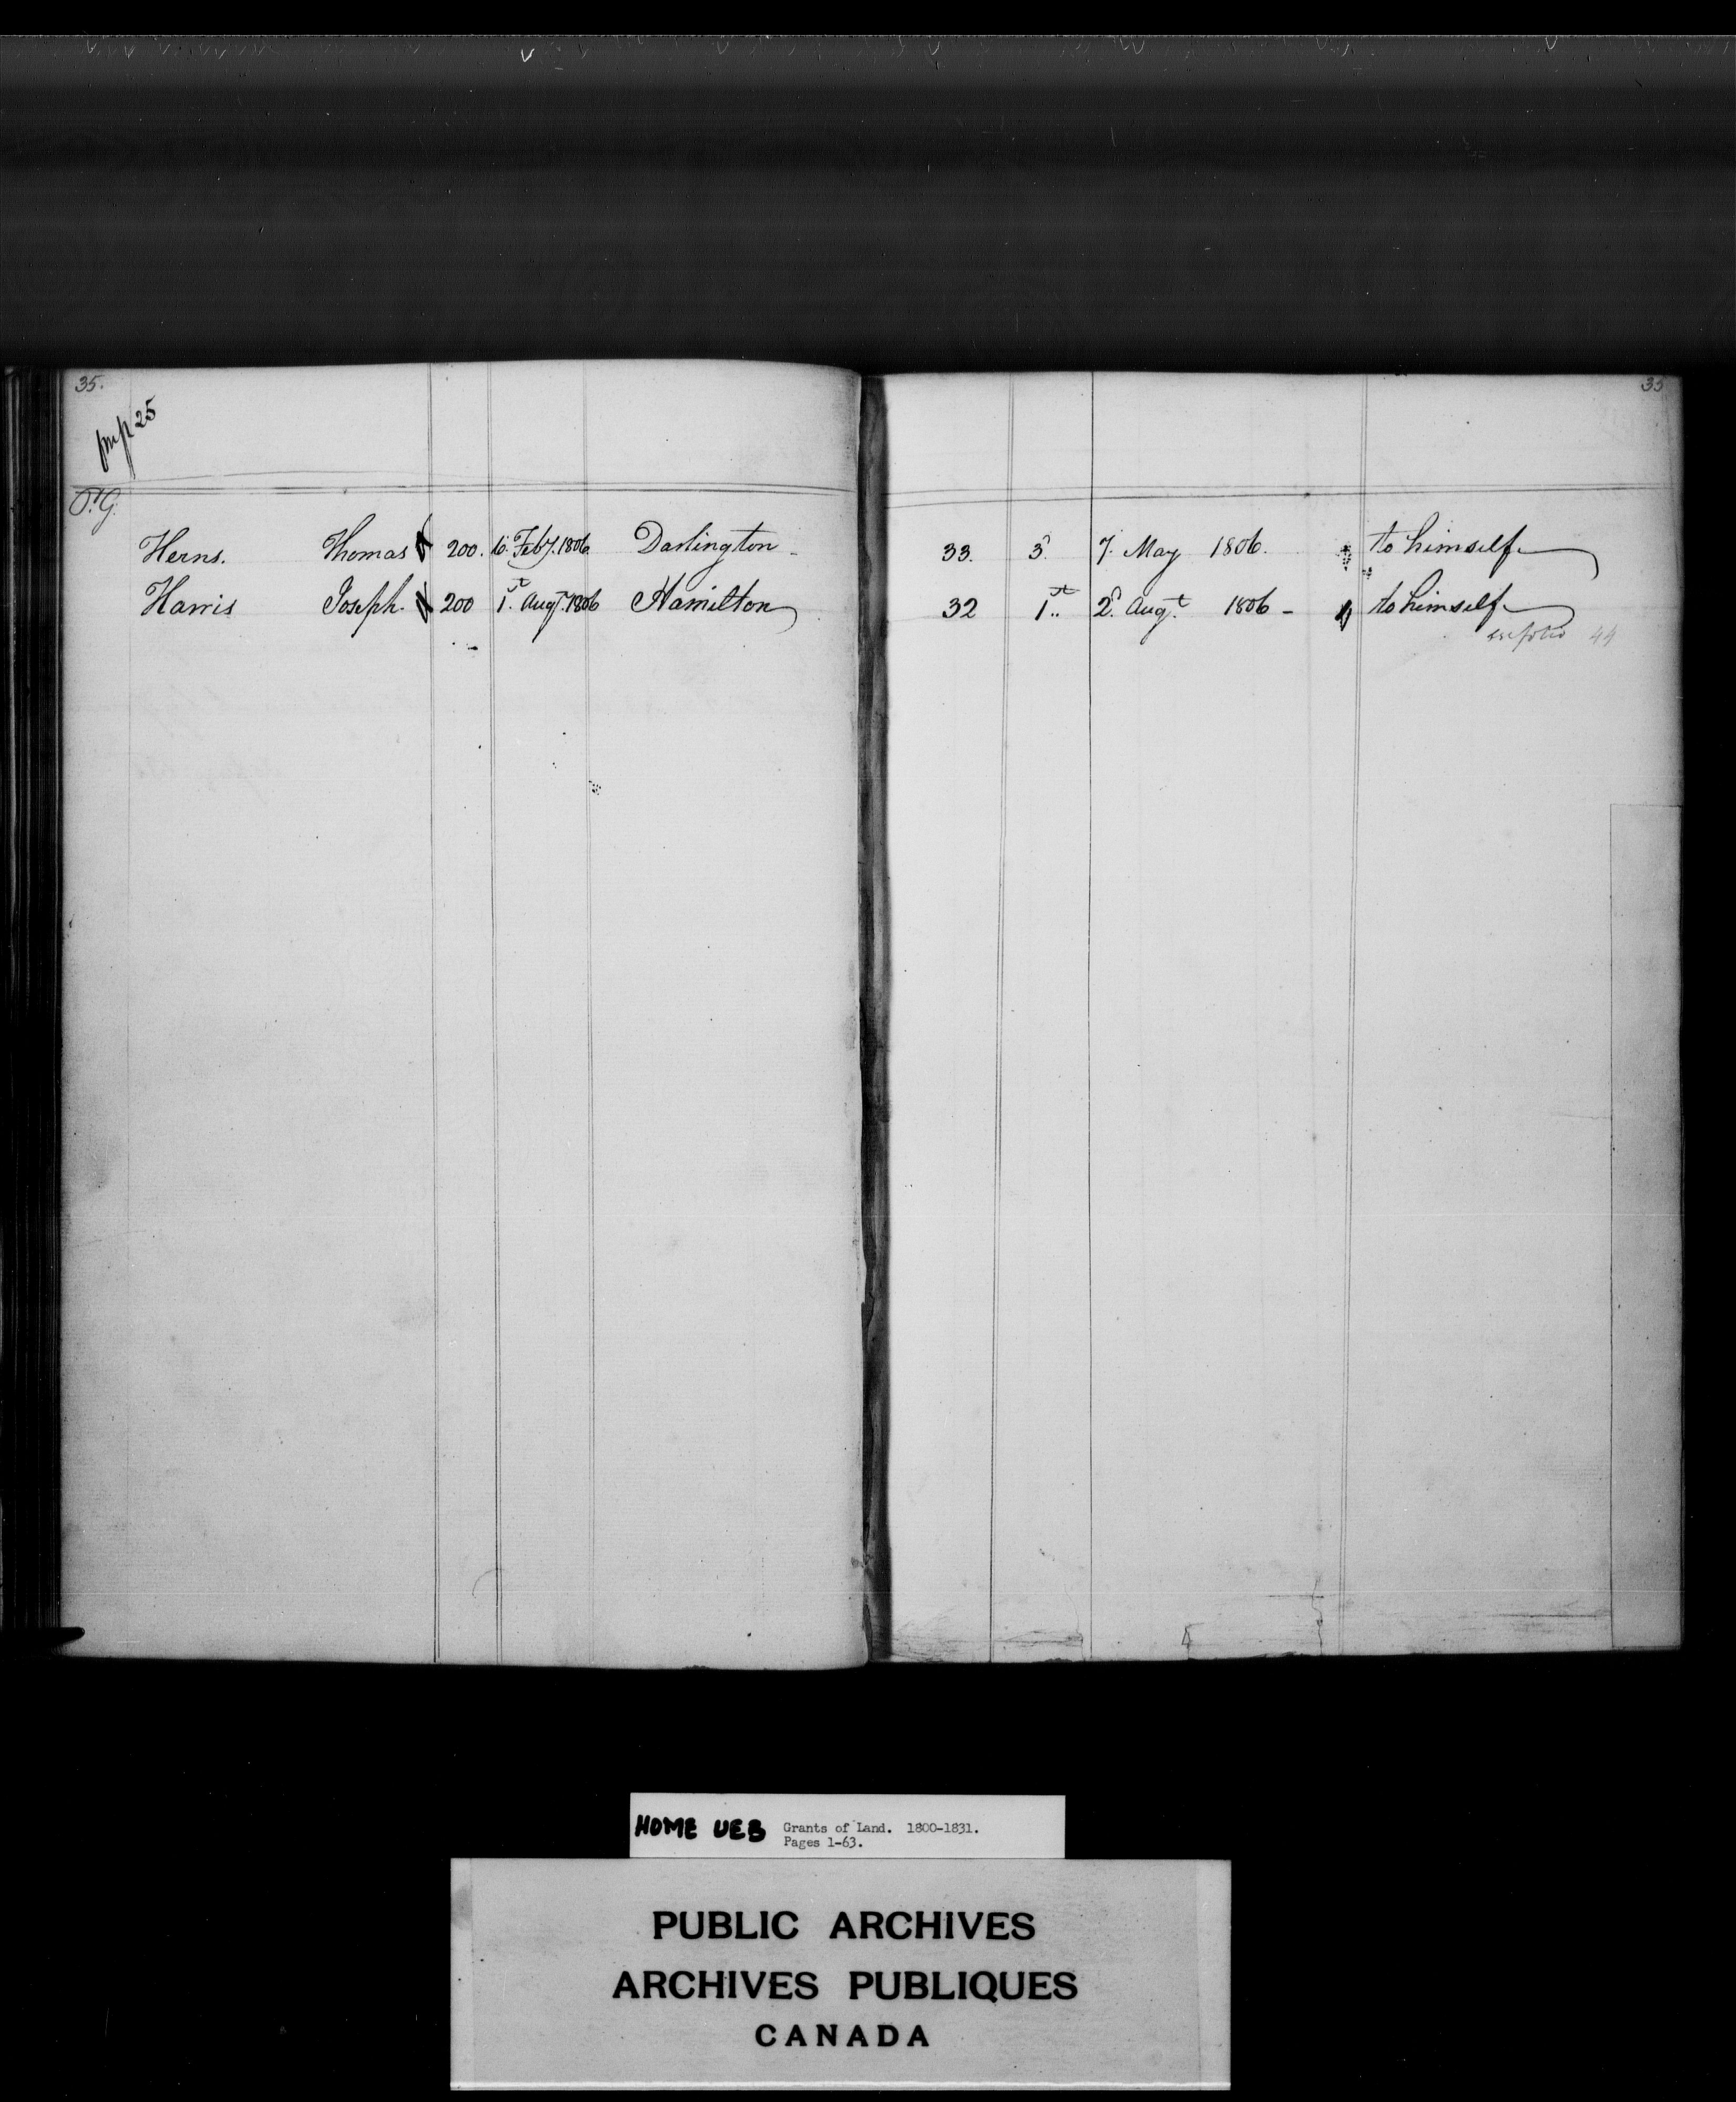 35.
35
25
O.G.
Herns. Thomas 200. 6. Feby. 1806 Darlington - 33. 3d. 7. May 1806. to himself
Harris Joseph. 200 1st. Augt. 1806 Hamilton 32 1st.. 2d. Augt. 1806 - to himself
folio 44
HOME UEB Grants of Land. 1800-1831.
Pages 1-63.
PUBLIC ARCHIVES
ARCHIVES PUBLIQUES
CANADA